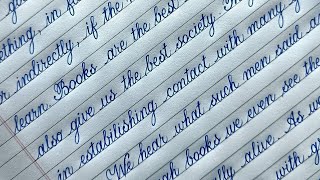 good, in fa
ething, in
or indirectly, if the m
learn. Books are the best society. In
also give us the best
in estabilishing contact with many s
We hear what such men said an
gh books we even see the
ally alive. As w
with g